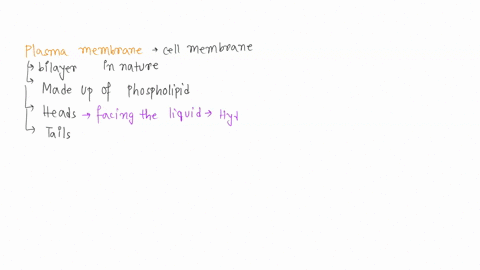 Plasma membrane → cell membrane
→ bilayer in nature
→ Made up of phospholipid
→ Heads → facing the liquid → Hyd
→ Tails